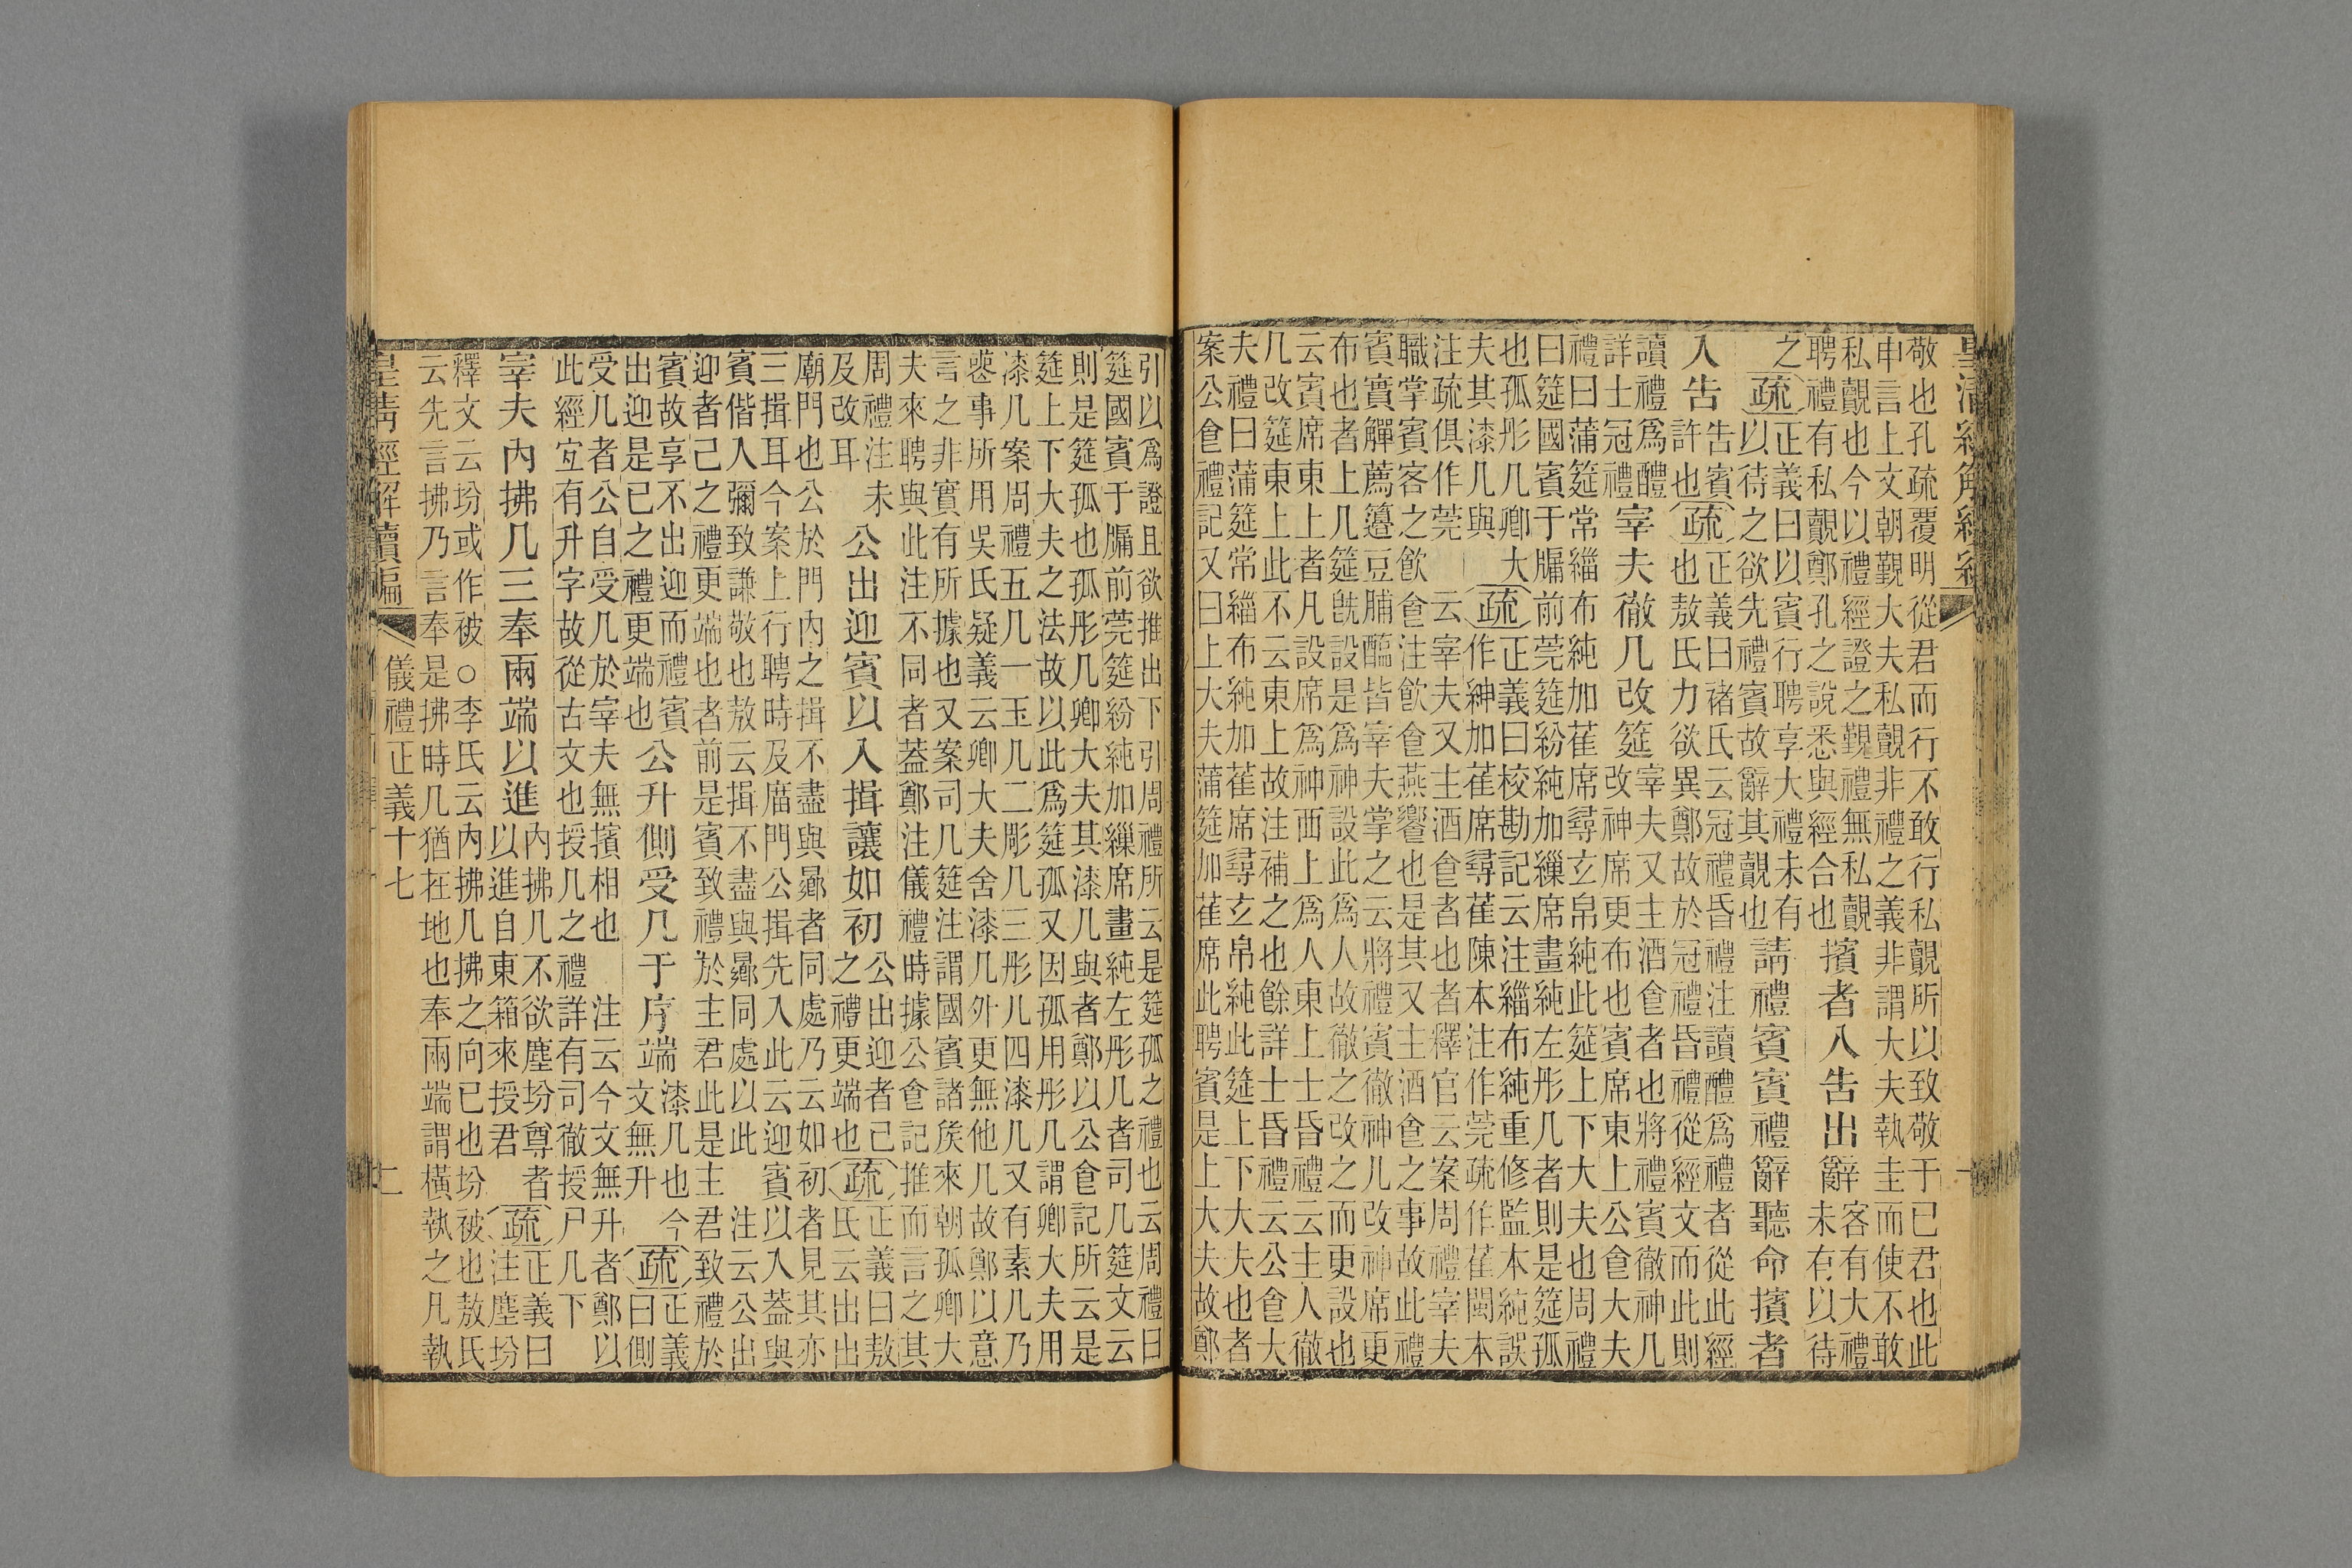 皇清經解續編
敬也孔疏覆明從君而行不敢行私覿所以致敬于已君也此
申言上文朝覲大夫私覿非禮之義非謂大夫執圭而使不敢
私覿也今以禮經證之覲禮無私覿
聘禮有私覿鄭孔之說悉與經合也
擯者入告出辭
客有大禮
未有以待
之
疏
正義曰以賓行聘享大禮未有
以待之欲先禮賓故辭其覿也
請禮賓賓禮辭聽命擯者
入告
告賓
許也
疏
正義曰褚氏云冠禮昏禮注讀醴爲禮者從此經
也敖氏力欲異鄭故於冠禮昏禮從經文而此則
讀禮爲醴
詳士冠禮
宰夫徹几改筵
宰夫又主酒食者也將禮賓徹神几
改神席更布也賓席東上公食大夫
禮曰蒲筵常緇布純加萑席尋玄帛純此筵上下大夫也周禮
曰筵國賓于牖前莞筵紛純加繅席畫純左彤几者則是筵孤
也孤彤几卿大
夫其漆几與
疏
正義曰校勘記云注緇布純重修監本純誤
作紳加萑席尋萑陳本注作莞疏作萑閩本
注疏俱作莞　云宰夫又主酒食者也者釋官云案周禮宰夫
職掌賓客之飲食注飲食燕饗也是其又主酒食之事故此禮
賓實觶薦籩豆脯醢皆宰夫掌之云將禮賓徹神几改神席更
布也者上几筵旣設是爲神設此爲人故徹之改之而更設也
云賓席東上者凡設席爲神西上爲人東上士昏禮云主人徹
几改筵東上此不云東上故注補之也餘詳士昏禮云公食大
夫禮曰蒲筵常緇布純加萑席尋玄帛純此筵上下大夫也者
案公食禮記又曰上大夫蒲筵加萑席此聘賓是上大夫故鄭
引以爲證且欲推出下引周禮所云是筵孤之禮也云周禮曰
筵國賓于牖前莞筵紛純加繅席畫純左彤几者司几筵文云
則是筵孤也孤彤几卿大夫其漆几與者鄭以公食記所云是
筵上下大夫之法故以此爲筵孤又因孤用彤几謂卿大夫用
漆几案周禮五几一玉几二彫几三彤几四漆几又有素几乃
喪事所用吳氏疑義云卿大夫舍漆几外更無他几故鄭以意
言之非實有所據也又案司几筵注謂國賓諸矦來朝孤卿大
夫來聘與此注不同者蓋鄭注儀禮時據公食記推而言之其
周禮注未
及改耳
公出迎賓以入揖讓如初
公出迎者己
之禮更端也
疏
正義曰敖
氏云出出
廟門也公於門內之揖不盡與曏者同處乃云如初者見其亦
三揖耳今案上行聘時及庿門公揖先入此云迎賓以入蓋與
賓偕入彌致謙敬也敖云揖不盡與曏同處以此　注云公出
迎者己之禮更端也者前是賓致禮於主君此是主君致禮於
賓故享不出迎而禮賓
出迎是已之禮更端也
公升側受几于序端
漆几也今
文無升
疏
正義
曰側
受几者公自受几於宰夫無擯相也　注云今文無升者鄭以
此經宐有升字故從古文也授几之禮詳有司徹授尸几下
宰夫內拂几三奉兩端以進
內拂几不欲塵坋尊者
以進自東箱來授君
疏
正義曰
注塵坋
釋文云坋或作被○李氏云內拂几拂之向已也坋被也敖氏
云先言拂乃言奉是拂時几猶在地也奉兩端謂橫執之凡執
皇清經解續編
儀禮正義十七
二